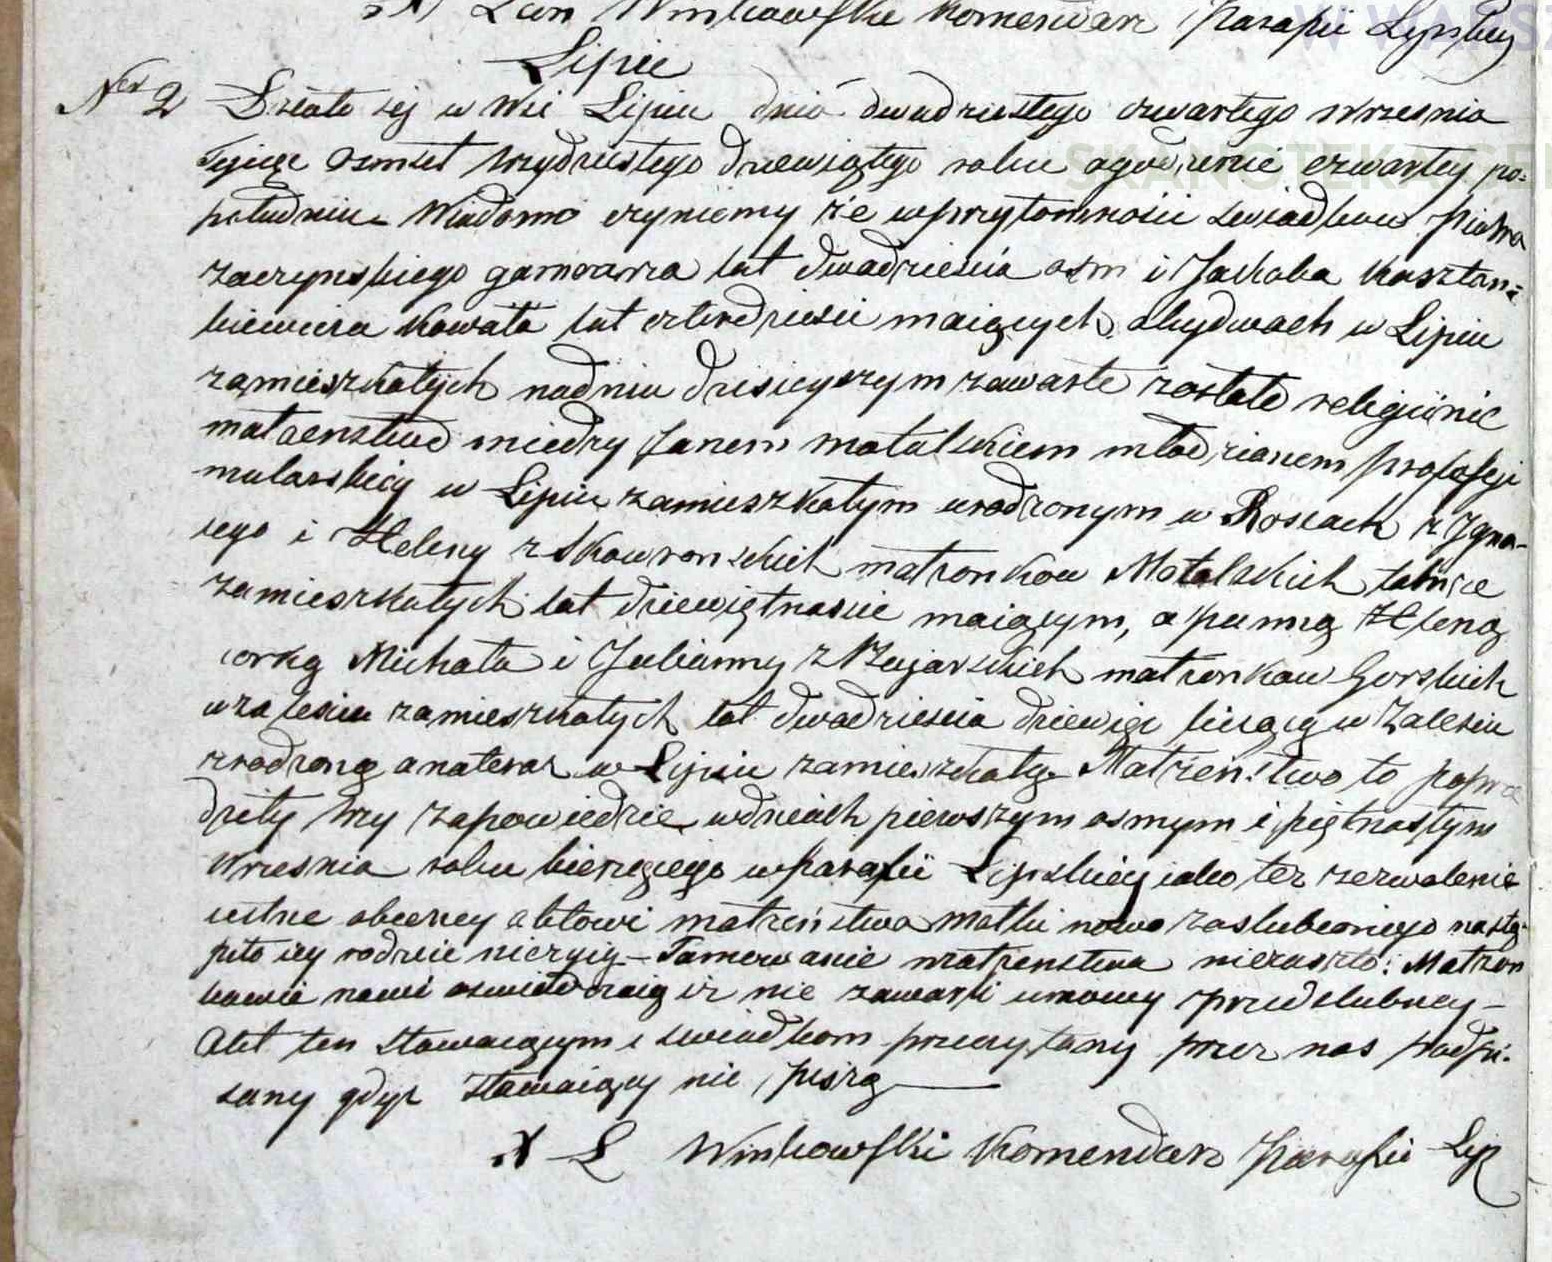 X Leon Winkowski Komendarz Parafii Lipskiey
Lipie
Ner 2 Działo się w Wsi Lipiu dnia dwudziestego czwartego Wrzesnia
Tysiąc osmset trzydziestego dziewiątego roku o godzinie czwartey po=
południu Wiadomo czyniemy że w przytomności swiadkow Piotra
Zaczynskiego garncarza lat dwadziescia osm i Jakoba Kasztan=
kiewicza Kowala lat czterdziesci maiących obydwoch w Lipiu
zamieszkałych na dniu dzisieyszym zawarte zostało religijnie
małzenstwo miedzy Janem Matulskiem młodzianem professji
mularskiey w Lipiu zamieszkałym urodzonym w Roscach z Igna-
cego i Heleny z Skowronskich małzonkow Matolskich tamże
zamieszkałych lat dziewiętnascie maiącym, a panną Heleną
corką Michała i Julianny z Kujawskich małzonkow Gorskich
w Zalesiu zamieszkałych lat dwadziescia dziewięc liczącą w Zalesiu
zrodzoną a na teraz w Lipiu zamieszkałą Małżeństwo to poprze
dziły trzy zapowiedzie w dniach pierwszym osmym i piętnastym
Wrzesnia roku bieżącego w Parafii Lipskiey iako też zezwolenie
ustne obecney aktowi małżeństwa Matki nowo zaslubionego nastą-
piło iey rodzice nieżyią – Tamowanie małżenstwa nie zaszło: Małzon
kowie nowi oswiadczaią iż nie zawarli umowy przedslubney –
Akt ten stawaiącym i swiadkom przeczytany przez nas podpi-
sany gdyż stawaiący nie piszą
X L Winkowski Komendarz Parafii Lip
W WARSZ
SKANOTEKA GEN